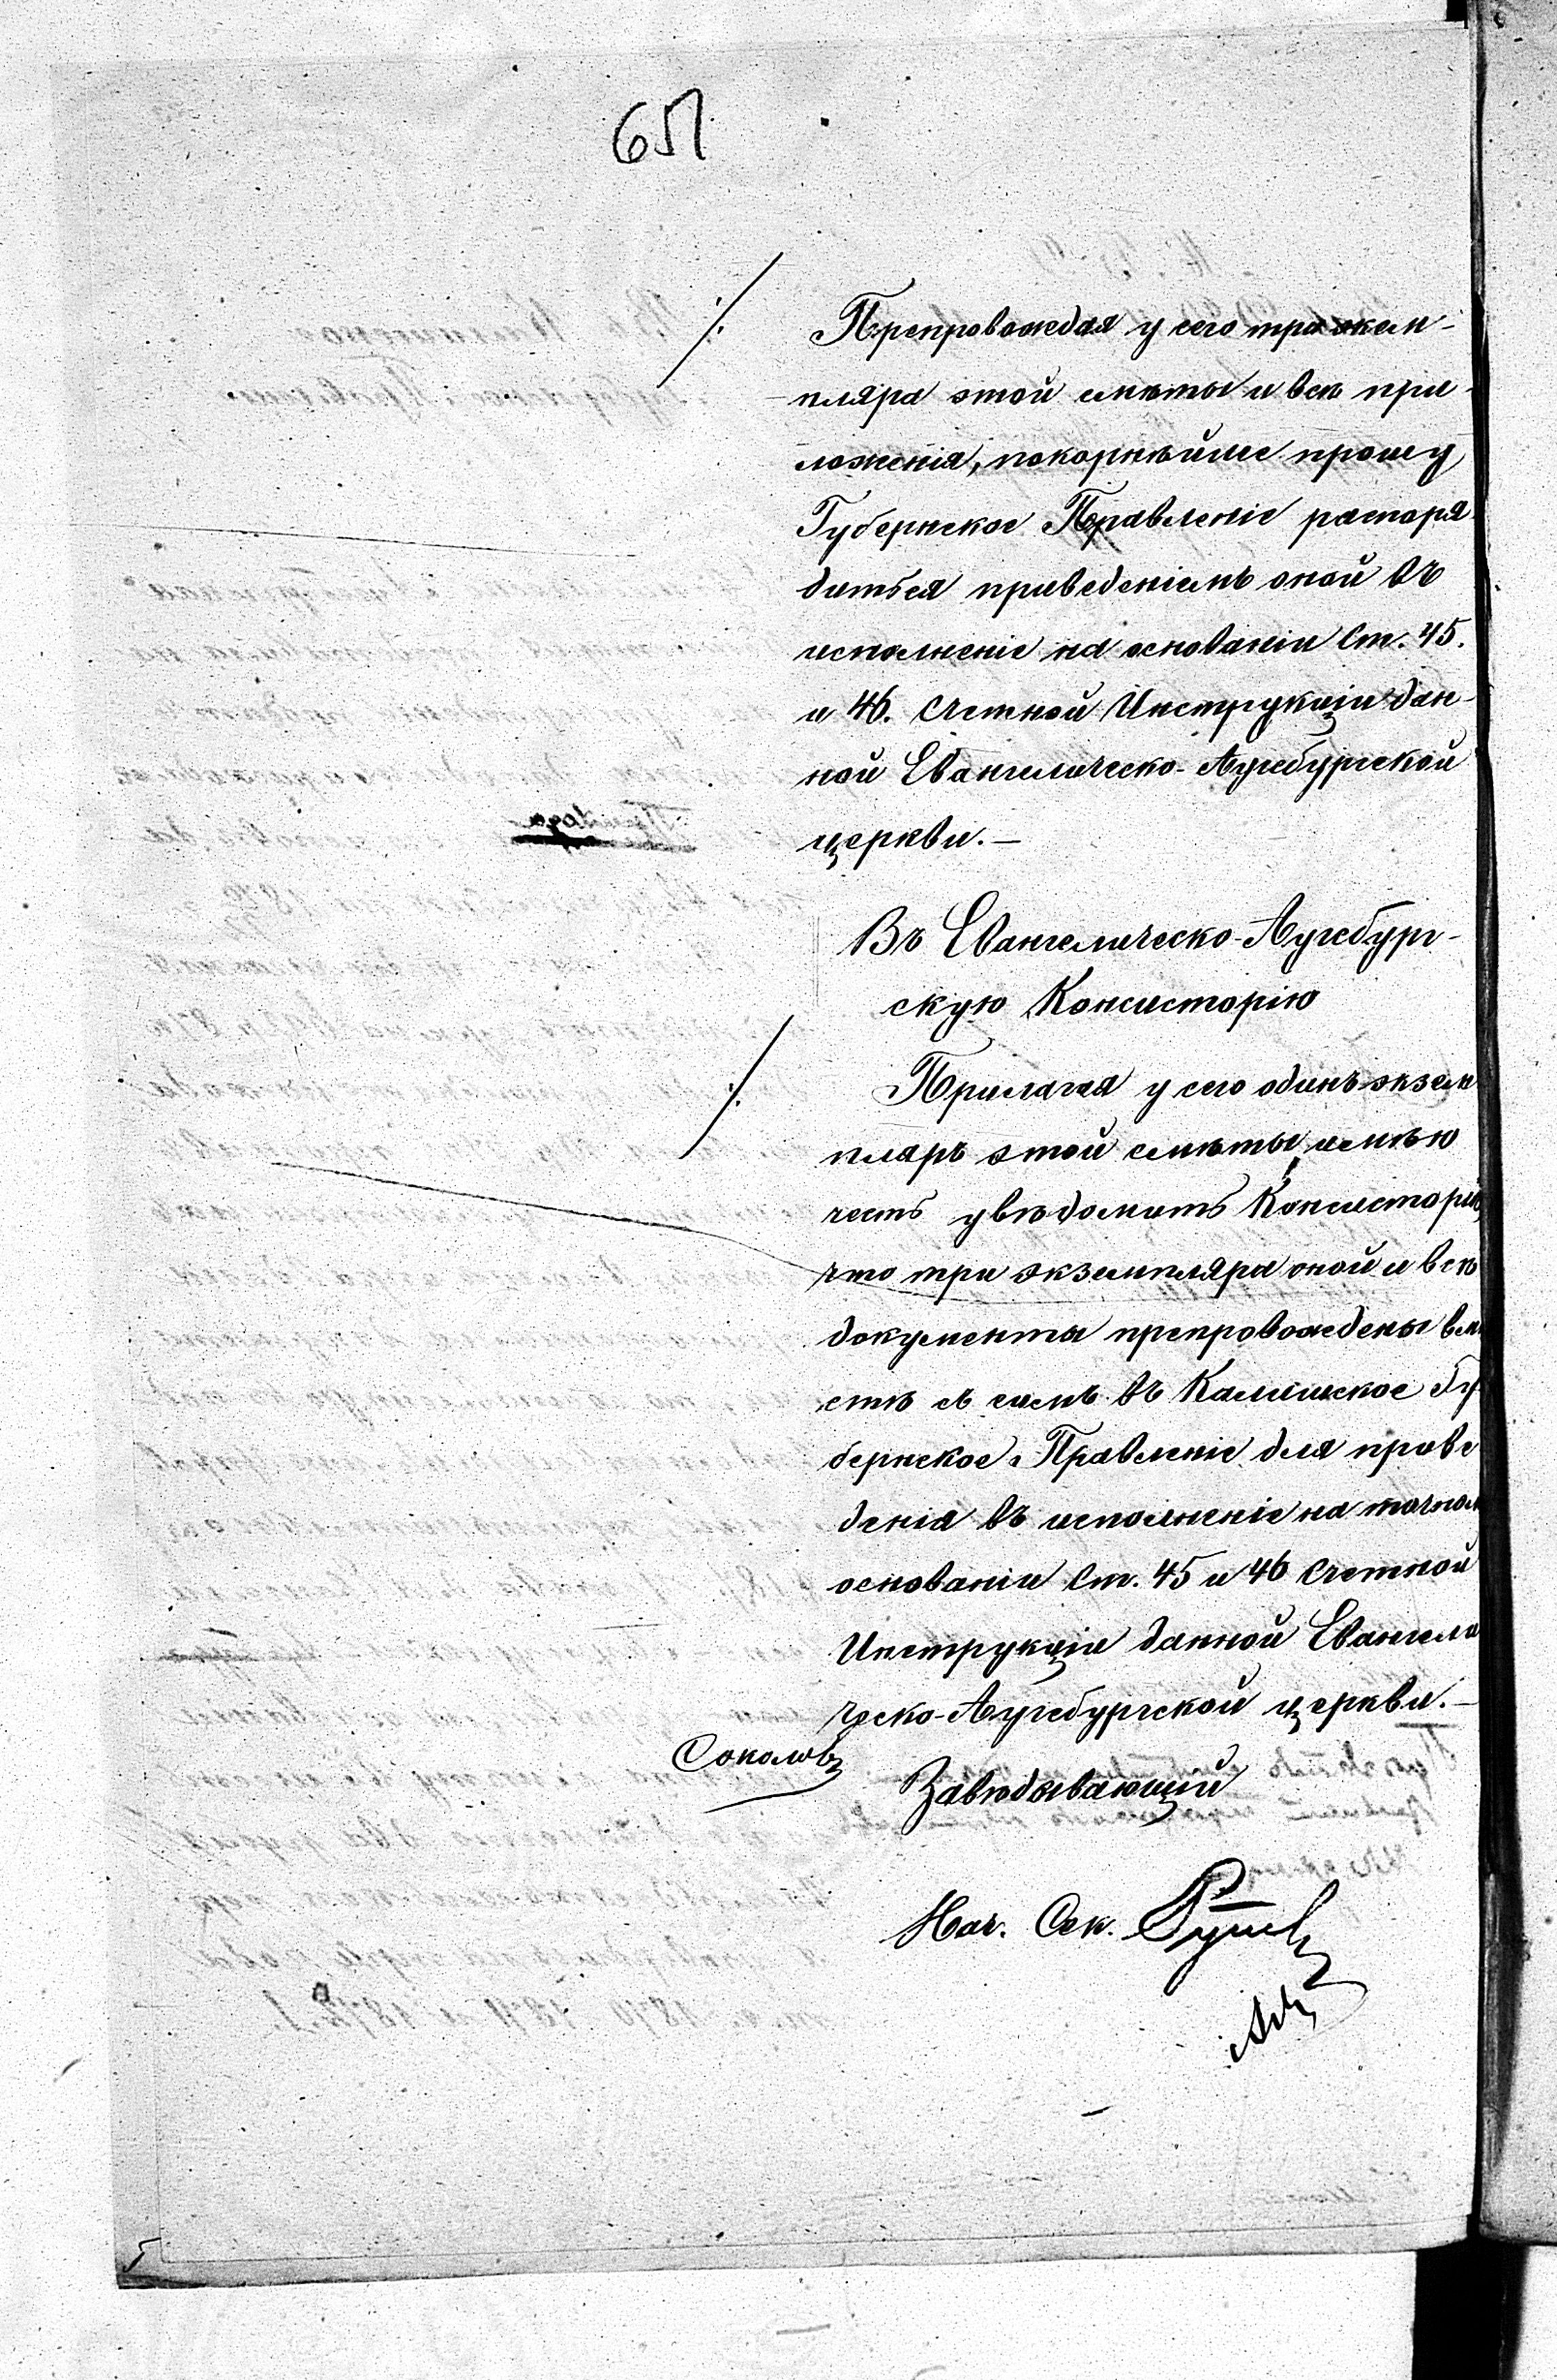 651
Препровождая у сего три экзем-
пляра этой смѣты и всѣ при-
ложенія, покорнѣйше прошу
Губернское Правленіе распоря
диться приведеніемъ оной въ
исполненіе на основаніи Ст. 45.
и 46. Счетной Инструкціи дан-
ной Евангелическо-Аугсбургской
церкви.—
Въ Евангелическо-Аугсбург-
скую Консисторію
Прилагая у сего одинъ экзем
пляръ этой смѣты, имѣю
честь увѣдомить Консисторію,
что три экземпляра оной и всѣ
документы препровождены вмѣ
стѣ съ симъ въ Калишское Гу
бернское Правленіе для приве
денія въ исполненіе на точном
основаніи Ст. 45 и 46 Счетной
Инструкціи данной Евангели
ческо-Аугсбургской церкви.—
Соколовъ
Завѣдывающій
Нач. Сек.